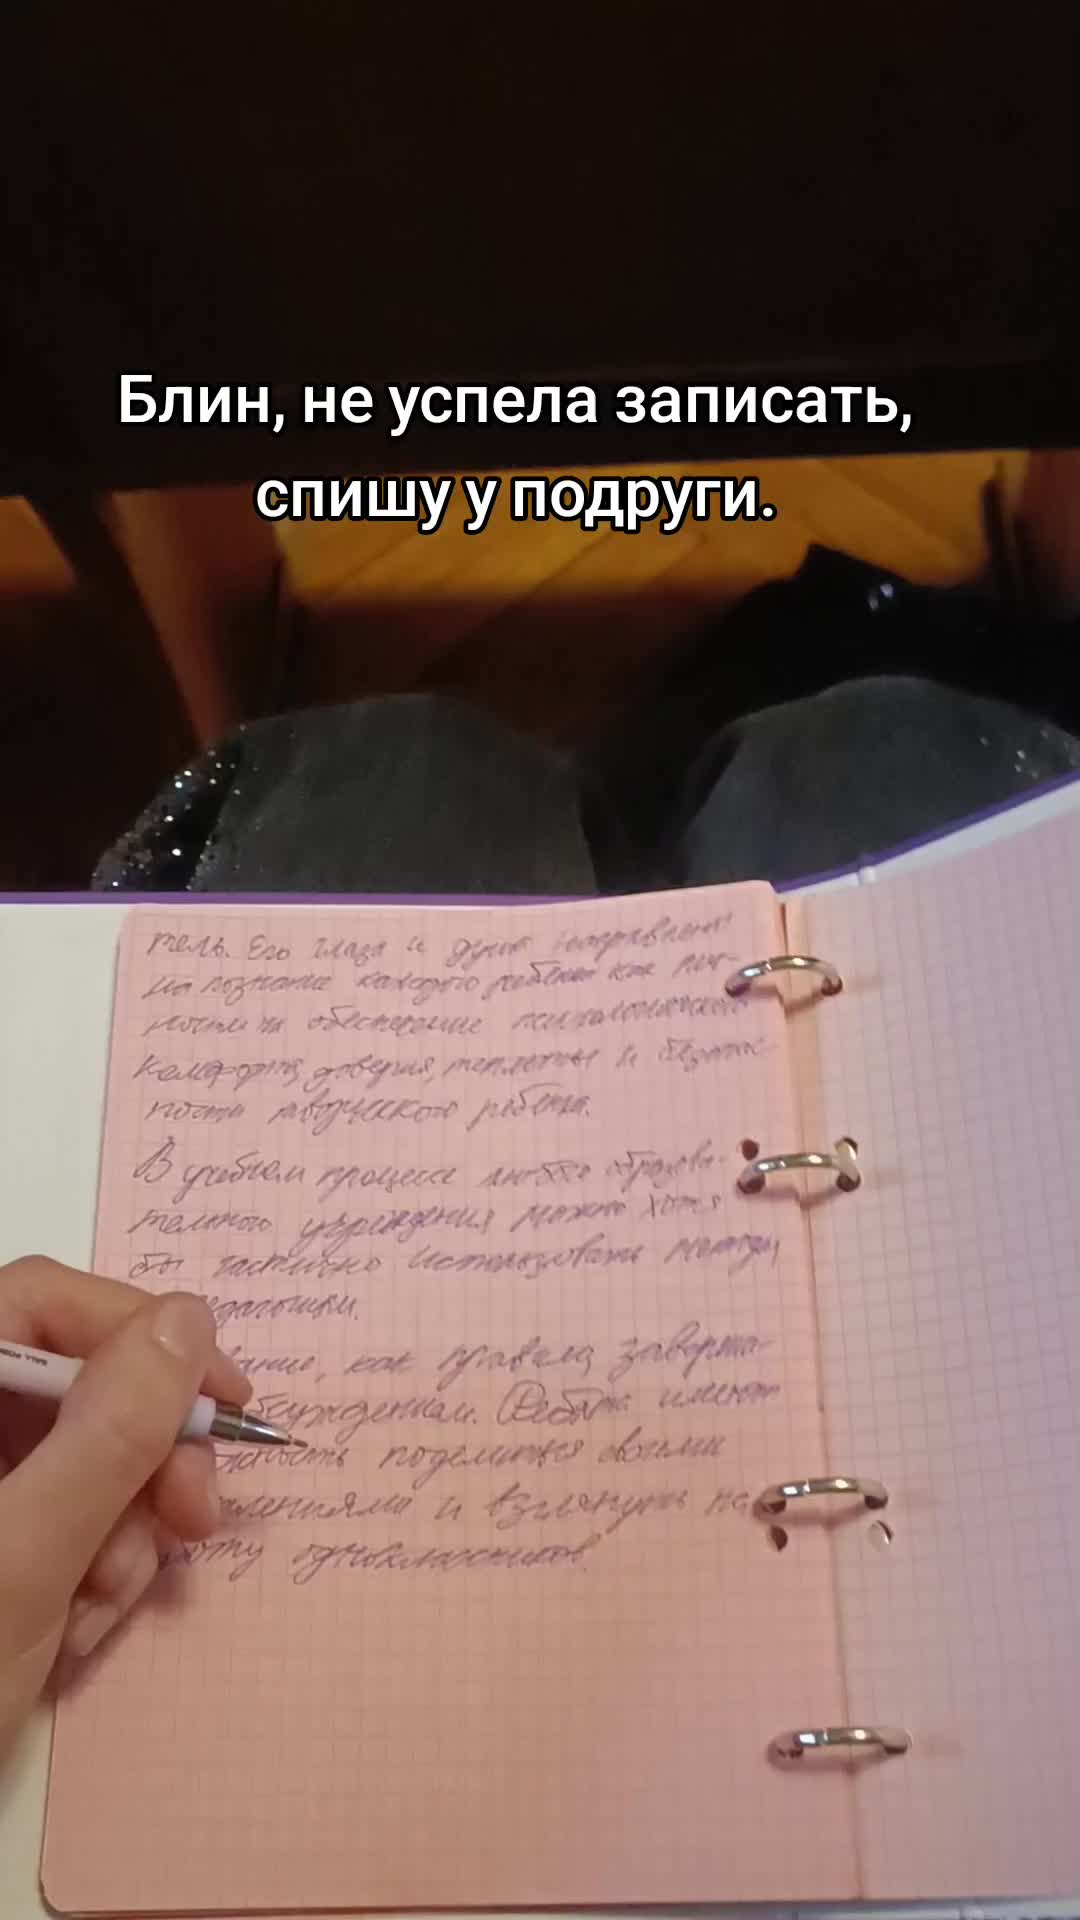 Блин, не успела записать,
спишу у подруги.
тель. Его глаза и душа направлены
на познание каждого ребенка как лич-
ности на обеспечение психологического
комфорта, доверия, теплоты и безопас-
ности творческого ребенка.
В учебном процессе любого образова-
тельного учреждения можно хотя
бы частично использовать методы
едагогики.
вание, как правило, заверша-
бсуждением. Ребята имеют
жность поделиться своими
тлениями и взглянуть на
боту одноклассников.